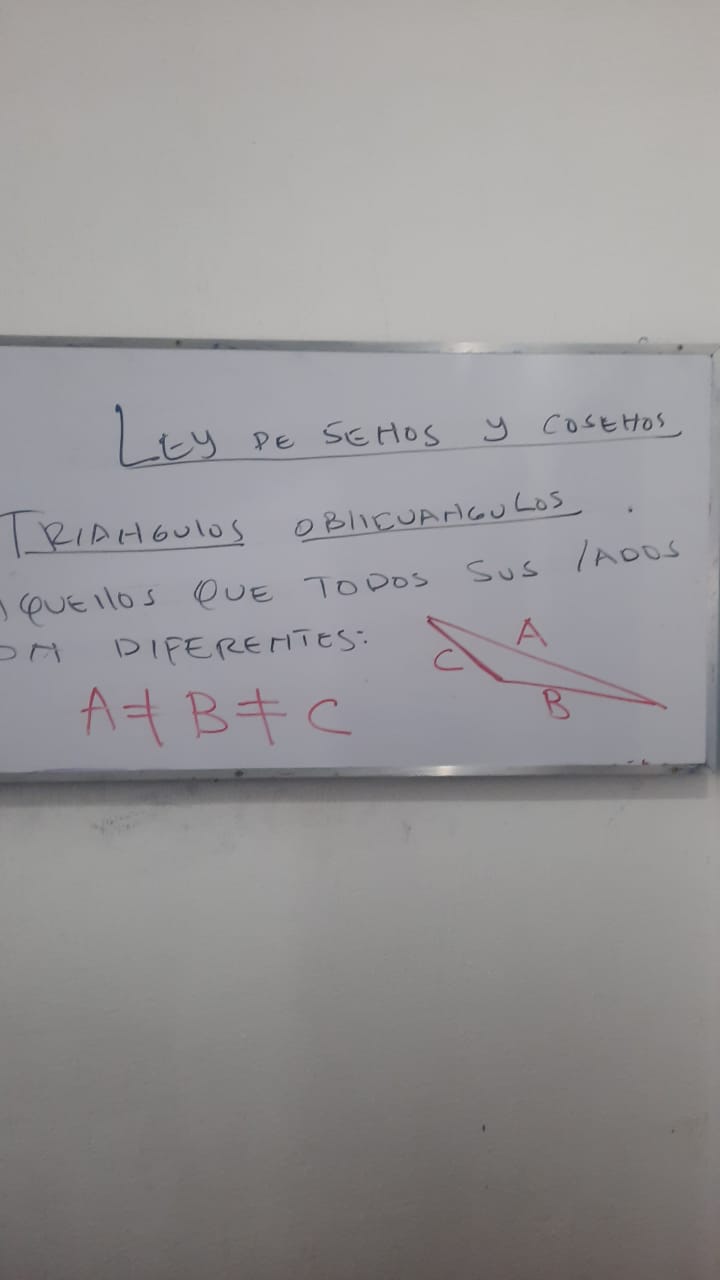 LEY DE SENOS Y COSENOS
TRIANGULOS OBLICUANGULOS.
AQUELLOS QUE TODOS SUS LADOS
ON DIFERENTES:
A
C
B
A ≠ B ≠ C